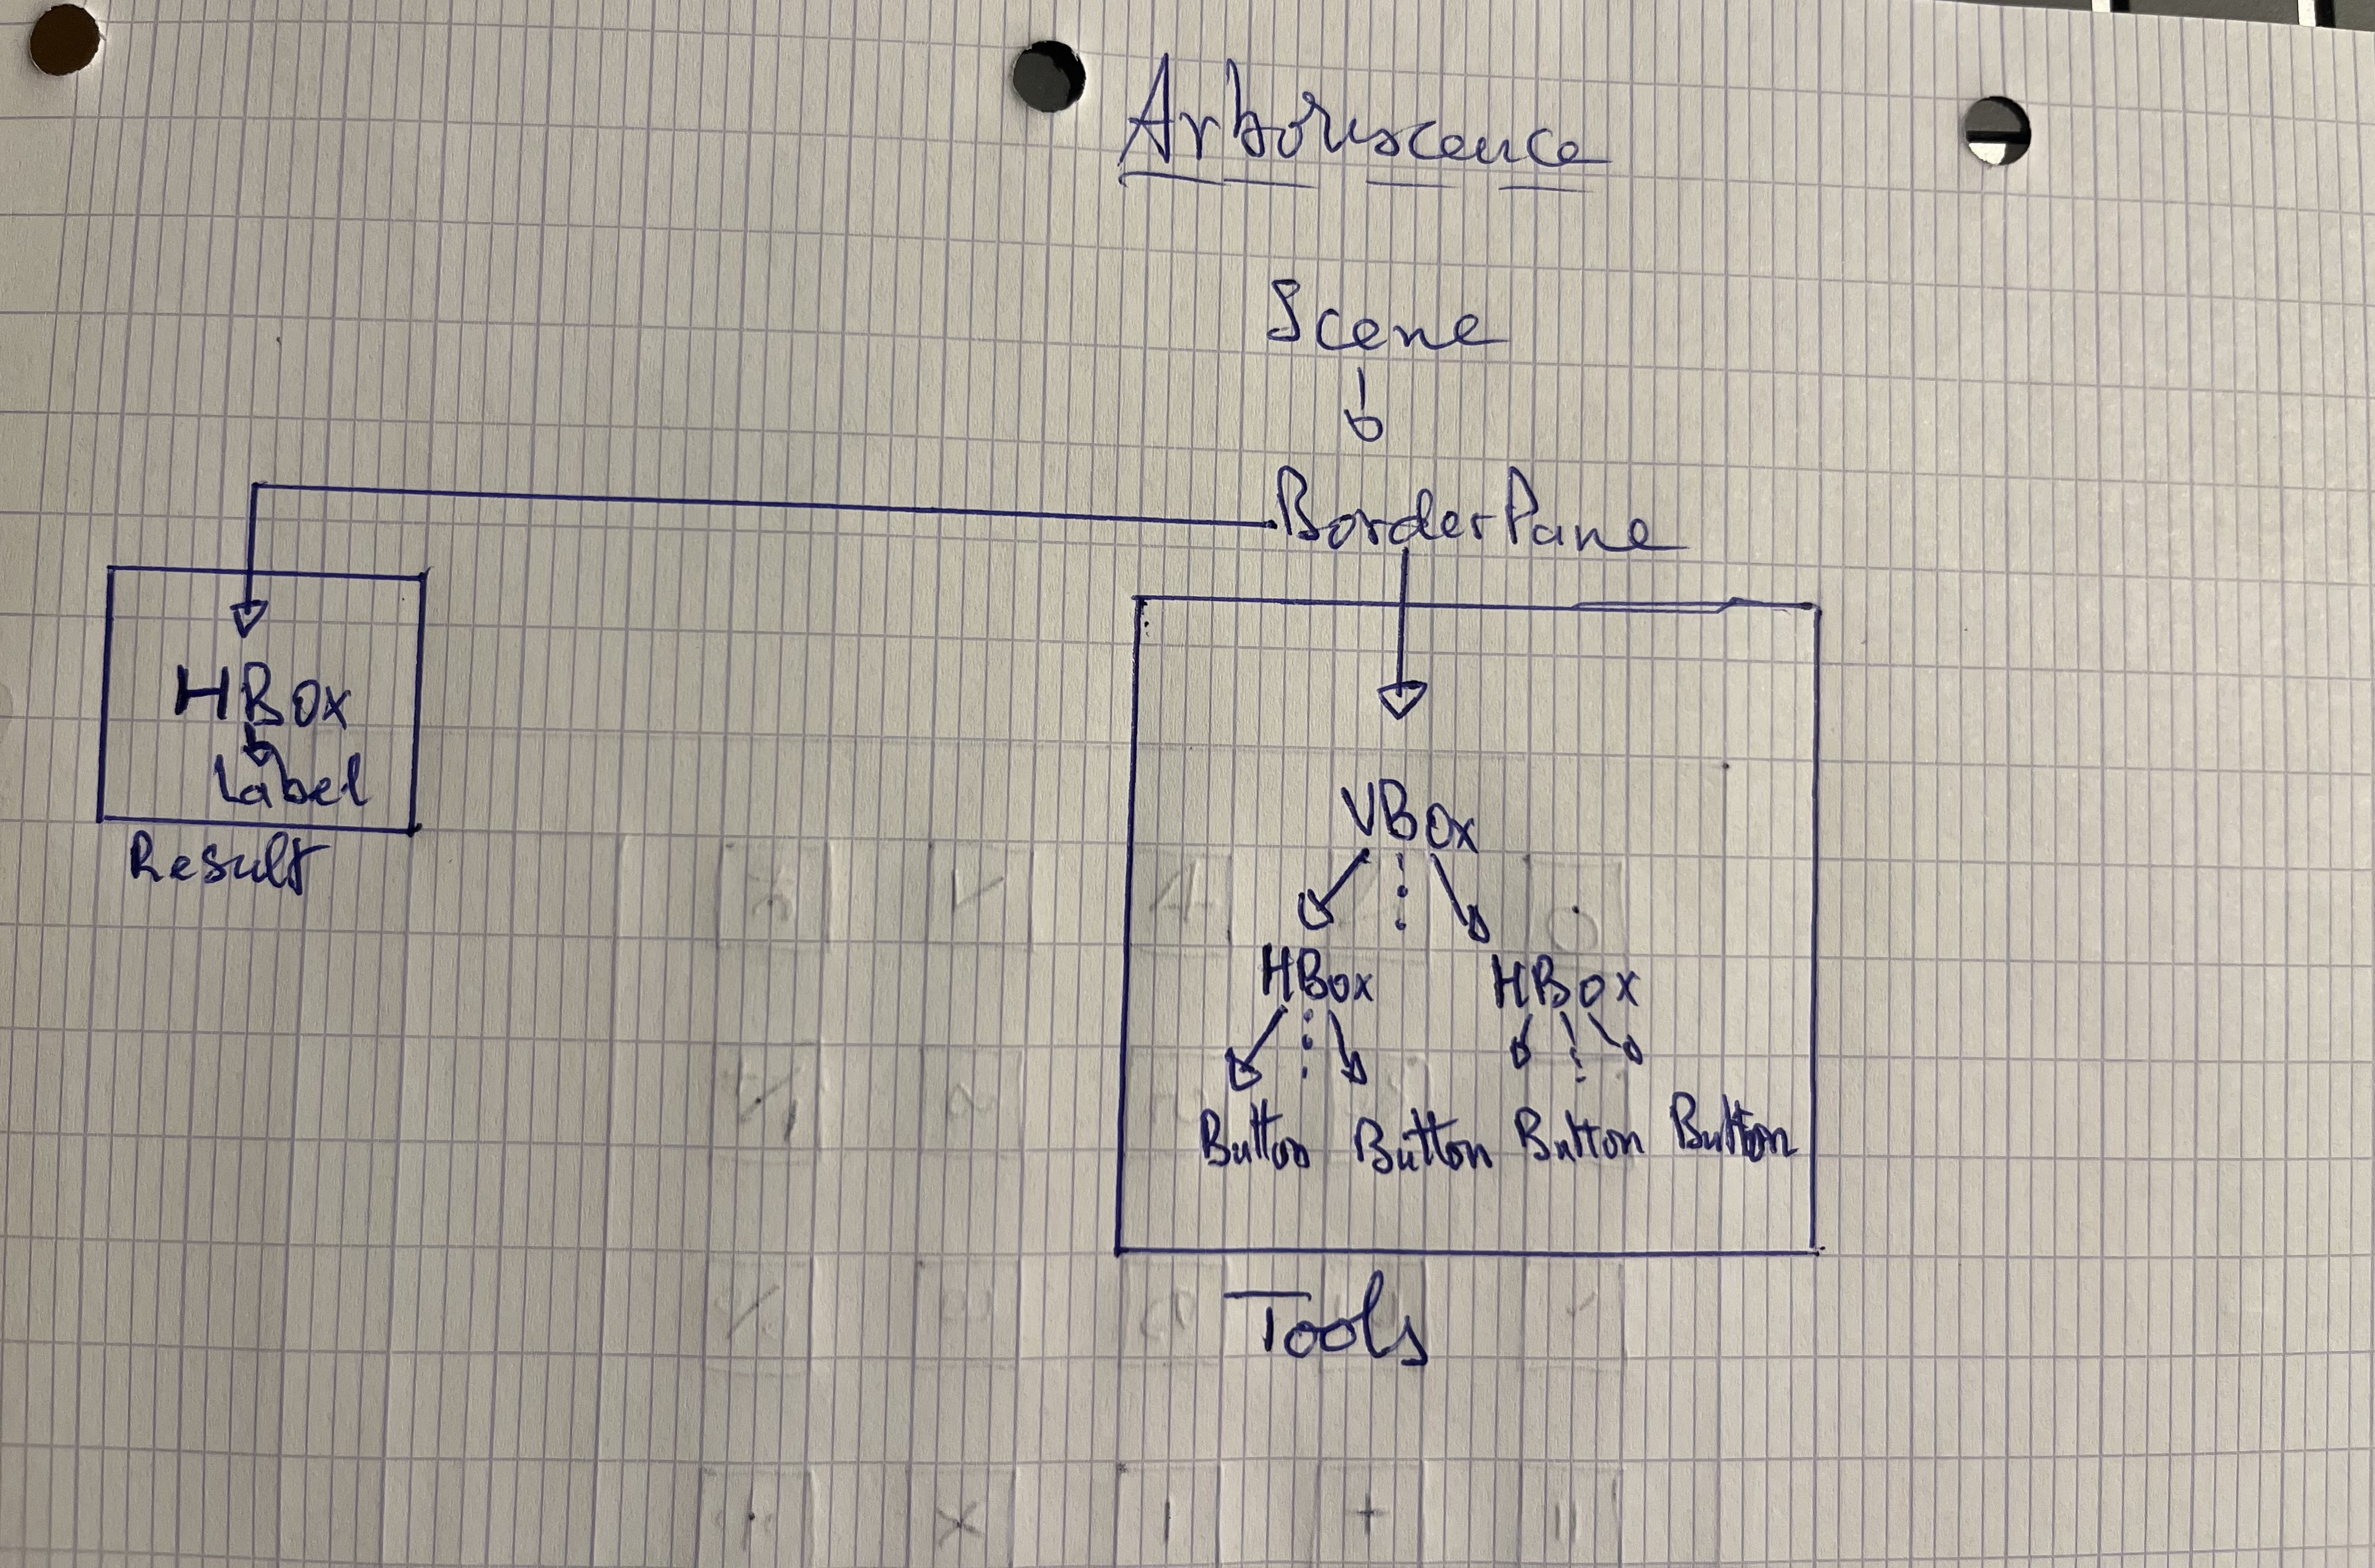 Arborescence
Scene
BorderPane
HBox
Label
Result
VBox
HBox HBox
Button Button Button Button
Tools